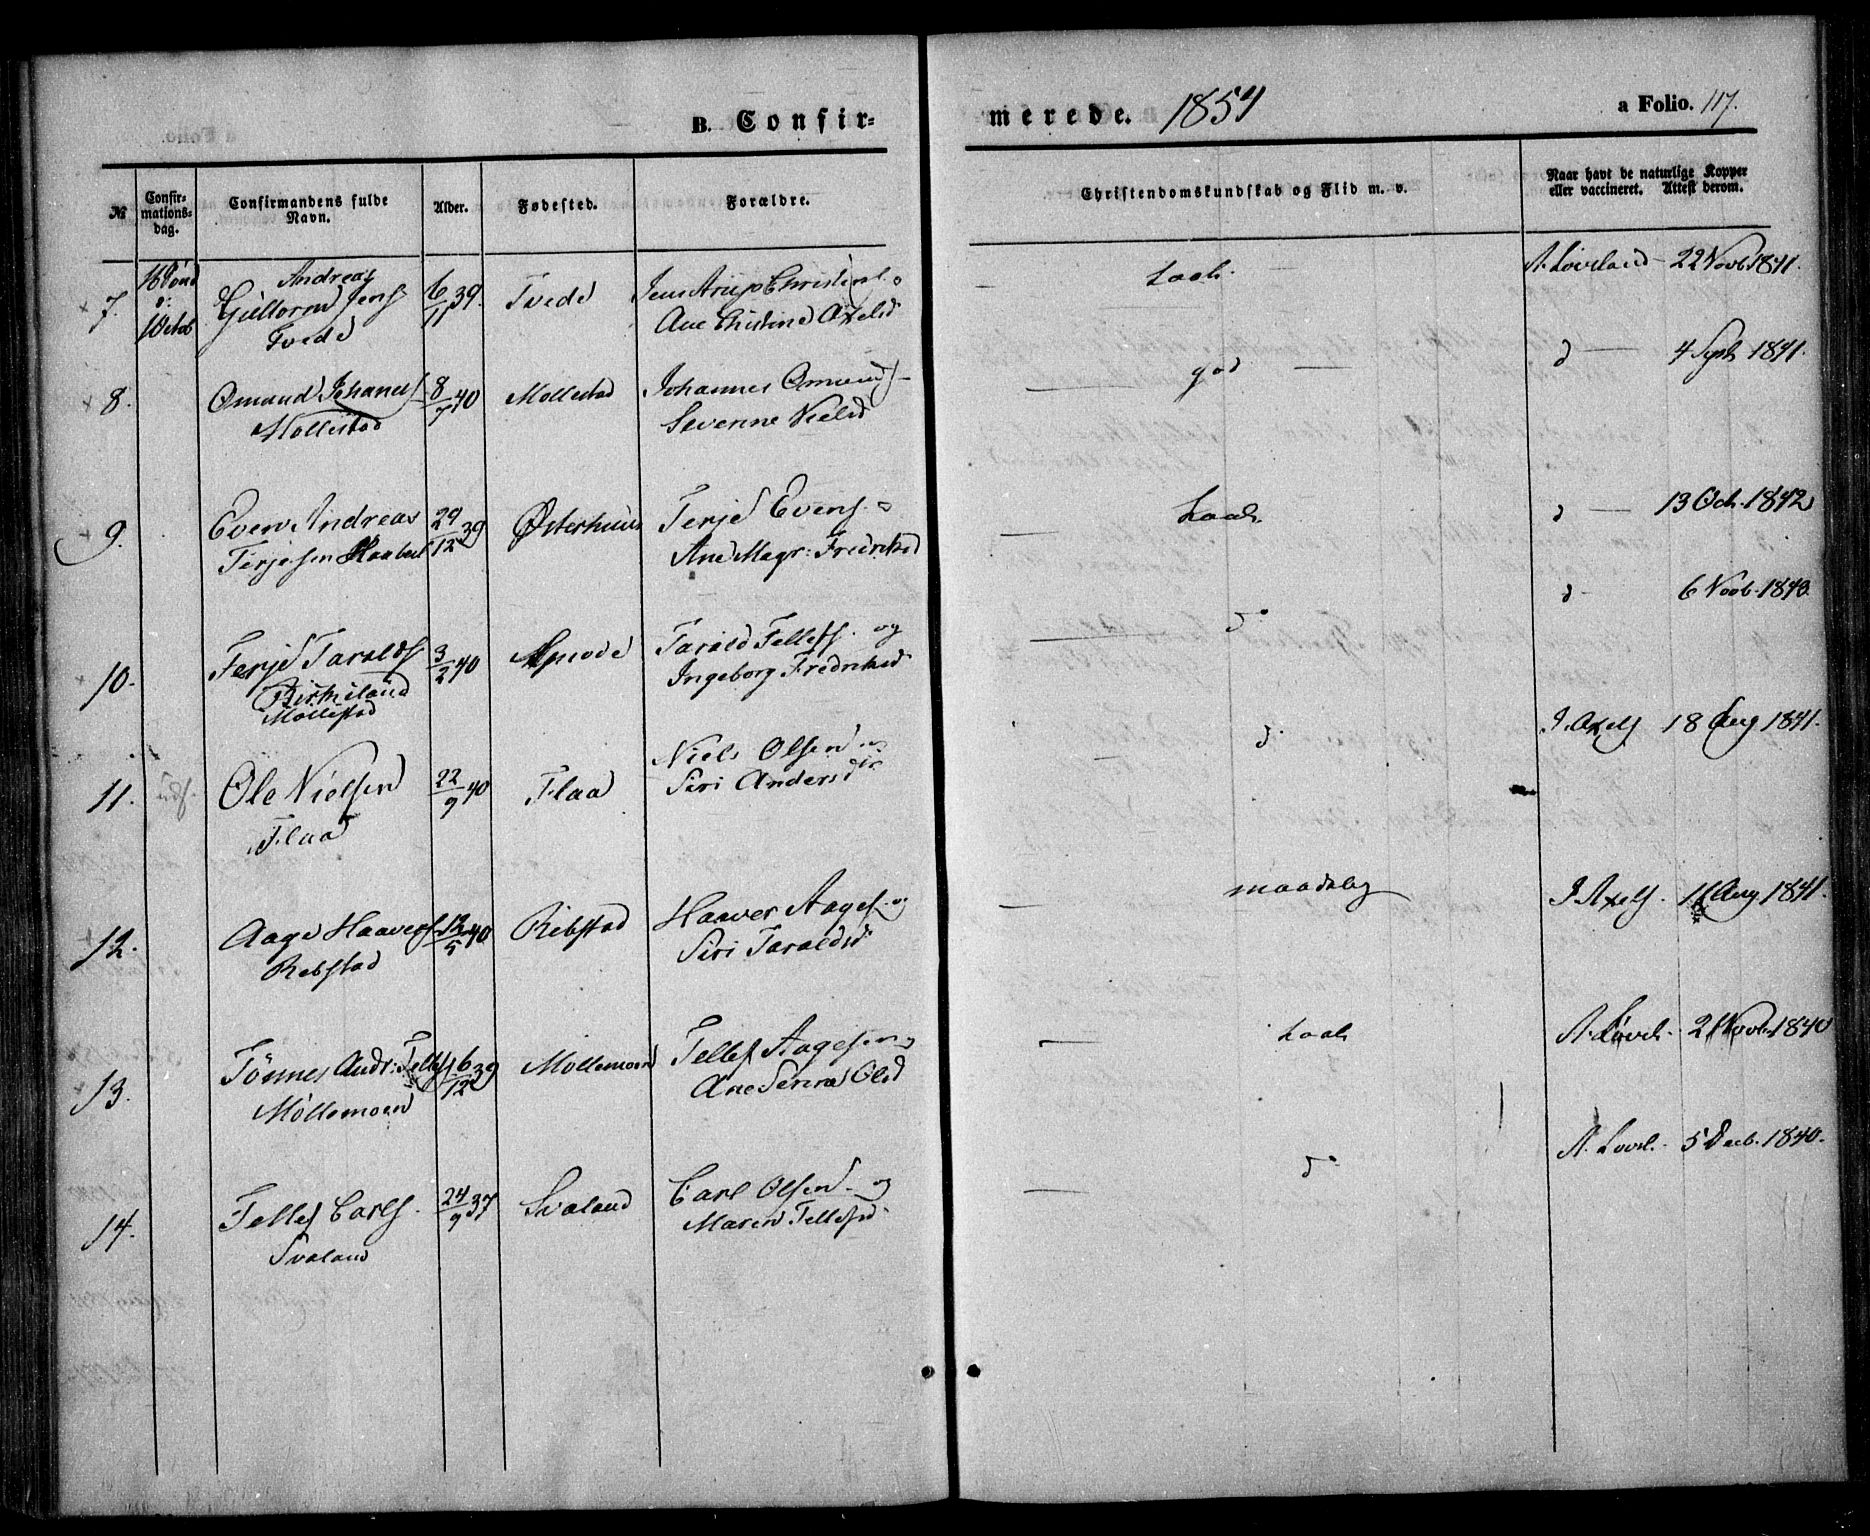 B. Confir-
merede. 1854
a Folio. 117.
№
Confir-
mations-
dag.
Confirmandens fulde
Navn.
Alder.
Fødested.
Forældre.
Christendomskundskab og Flid m. v.
Naar havt de naturlige Kopper
eller vaccineret. Attest derom.
7.
1 Octob
Andreas
Guttorm Jens
Tvede
6/11 39.
Tvede
Jens Arup Christens. o
Ane Christine Axelsd
Laak.
A. Loveland - 22 Novb. 1841.
8.
Omund Johanes
Mollestad
8/7 40
Mollestad
Johannes Omunds -
Severine Nielsd
god
d - 4 Sept. 1841.
9.
Even Andreas
Terjesen Haabest
29/12 39
Østerhuus
Terje Evens. o
Ane Magr: Fredriksd
Laak.
d - 13 Oct. 1842
10.
Terje Taralds
Birkeland
Mollestad
3/2 40
Tarald Tellefs. og
Ingeborg Fredriksd
d°
d - 6 Novb. 1840.
11.
Ole Nielsen
Flaa
22/9 40
Flaa
Niels Olsen o
Siri Andersd
d.
J. Axels 18 Aug 1841.
12.
Aage Haavers
Rebstad
13/5 40
Rebstad
Haaver Aages. og
Siri Taraldsd
maadelig
J Axels. 11 Aug 1841.
13.
Tönnes Andr: Tellefs
Möllemoen
16/12 39
Mollemoen
Tellef Aagesen o
Ane Serine Olsd
Laak
A. Lövel. 21 Novb. 1840
14.
Tellef Carls.
Svaland
24/9 37
Svaland
Carl Olsen - og
Maren Tellefsd
d°
A. Lovel. 5 Decb. 1840.